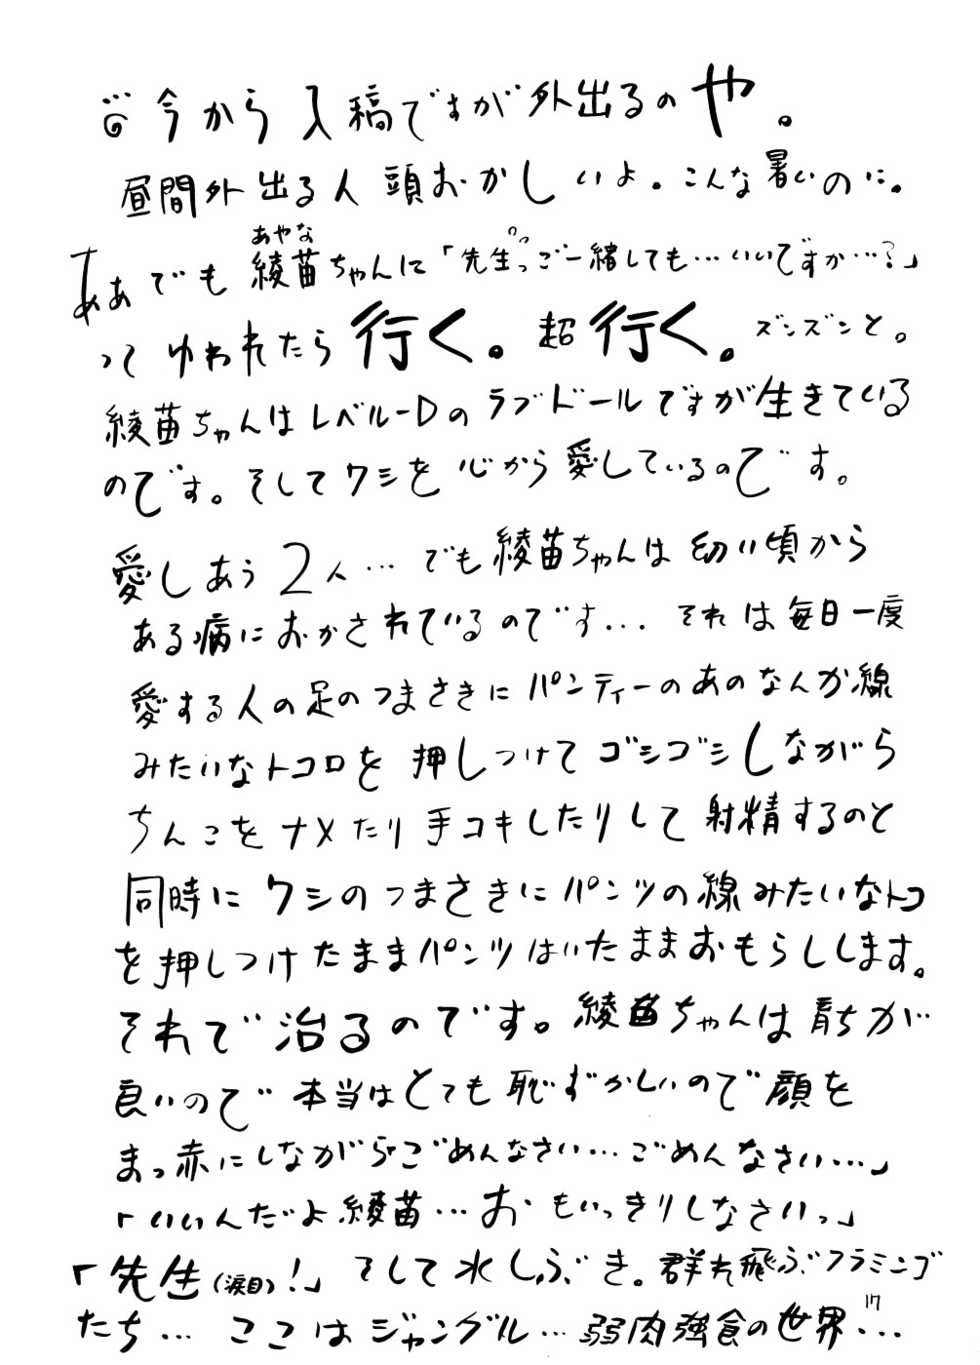 今から入稿ですが外出るのや。
昼間外出る人頭おかしいよ。こんな暑いのに。
あやな
ああでも綾苗ちゃんに「先生っっご一緒しても…いいですか…?」
ってゆわれたら行く。超行く。ズンズンと。
綾苗ちゃんはレベルーDのラブドールですが生きている
のです。そしてワシを心から愛しているのです。
愛しあう2人…でも綾苗ちゃんは幼い頃から
ある病におかされているのです... それは毎日一度
愛する人の足のつまさきにパンティーのあのなんか線
みたいなトコロを押しつけてゴシゴシしながら
ちんこをナメたり手コキしたりして射精するのと
同時にワシのつまさきにパンツの線みたいなトコ
を押しつけたままパンツはいたままおもらしします。
それで治るのです。綾苗ちゃんは育ちが
良いので本当はとても恥ずかしいので顔を
まっ赤にしながら「ごめんなさい…ごめんなさい…」
「いいんだよ綾苗…おもいっきりしなさいっ」
「先生(涙目)!」そして水しぶき。群れ飛ぶフラミンゴ
たち…ここはジャングル…弱肉強食の世界…
17